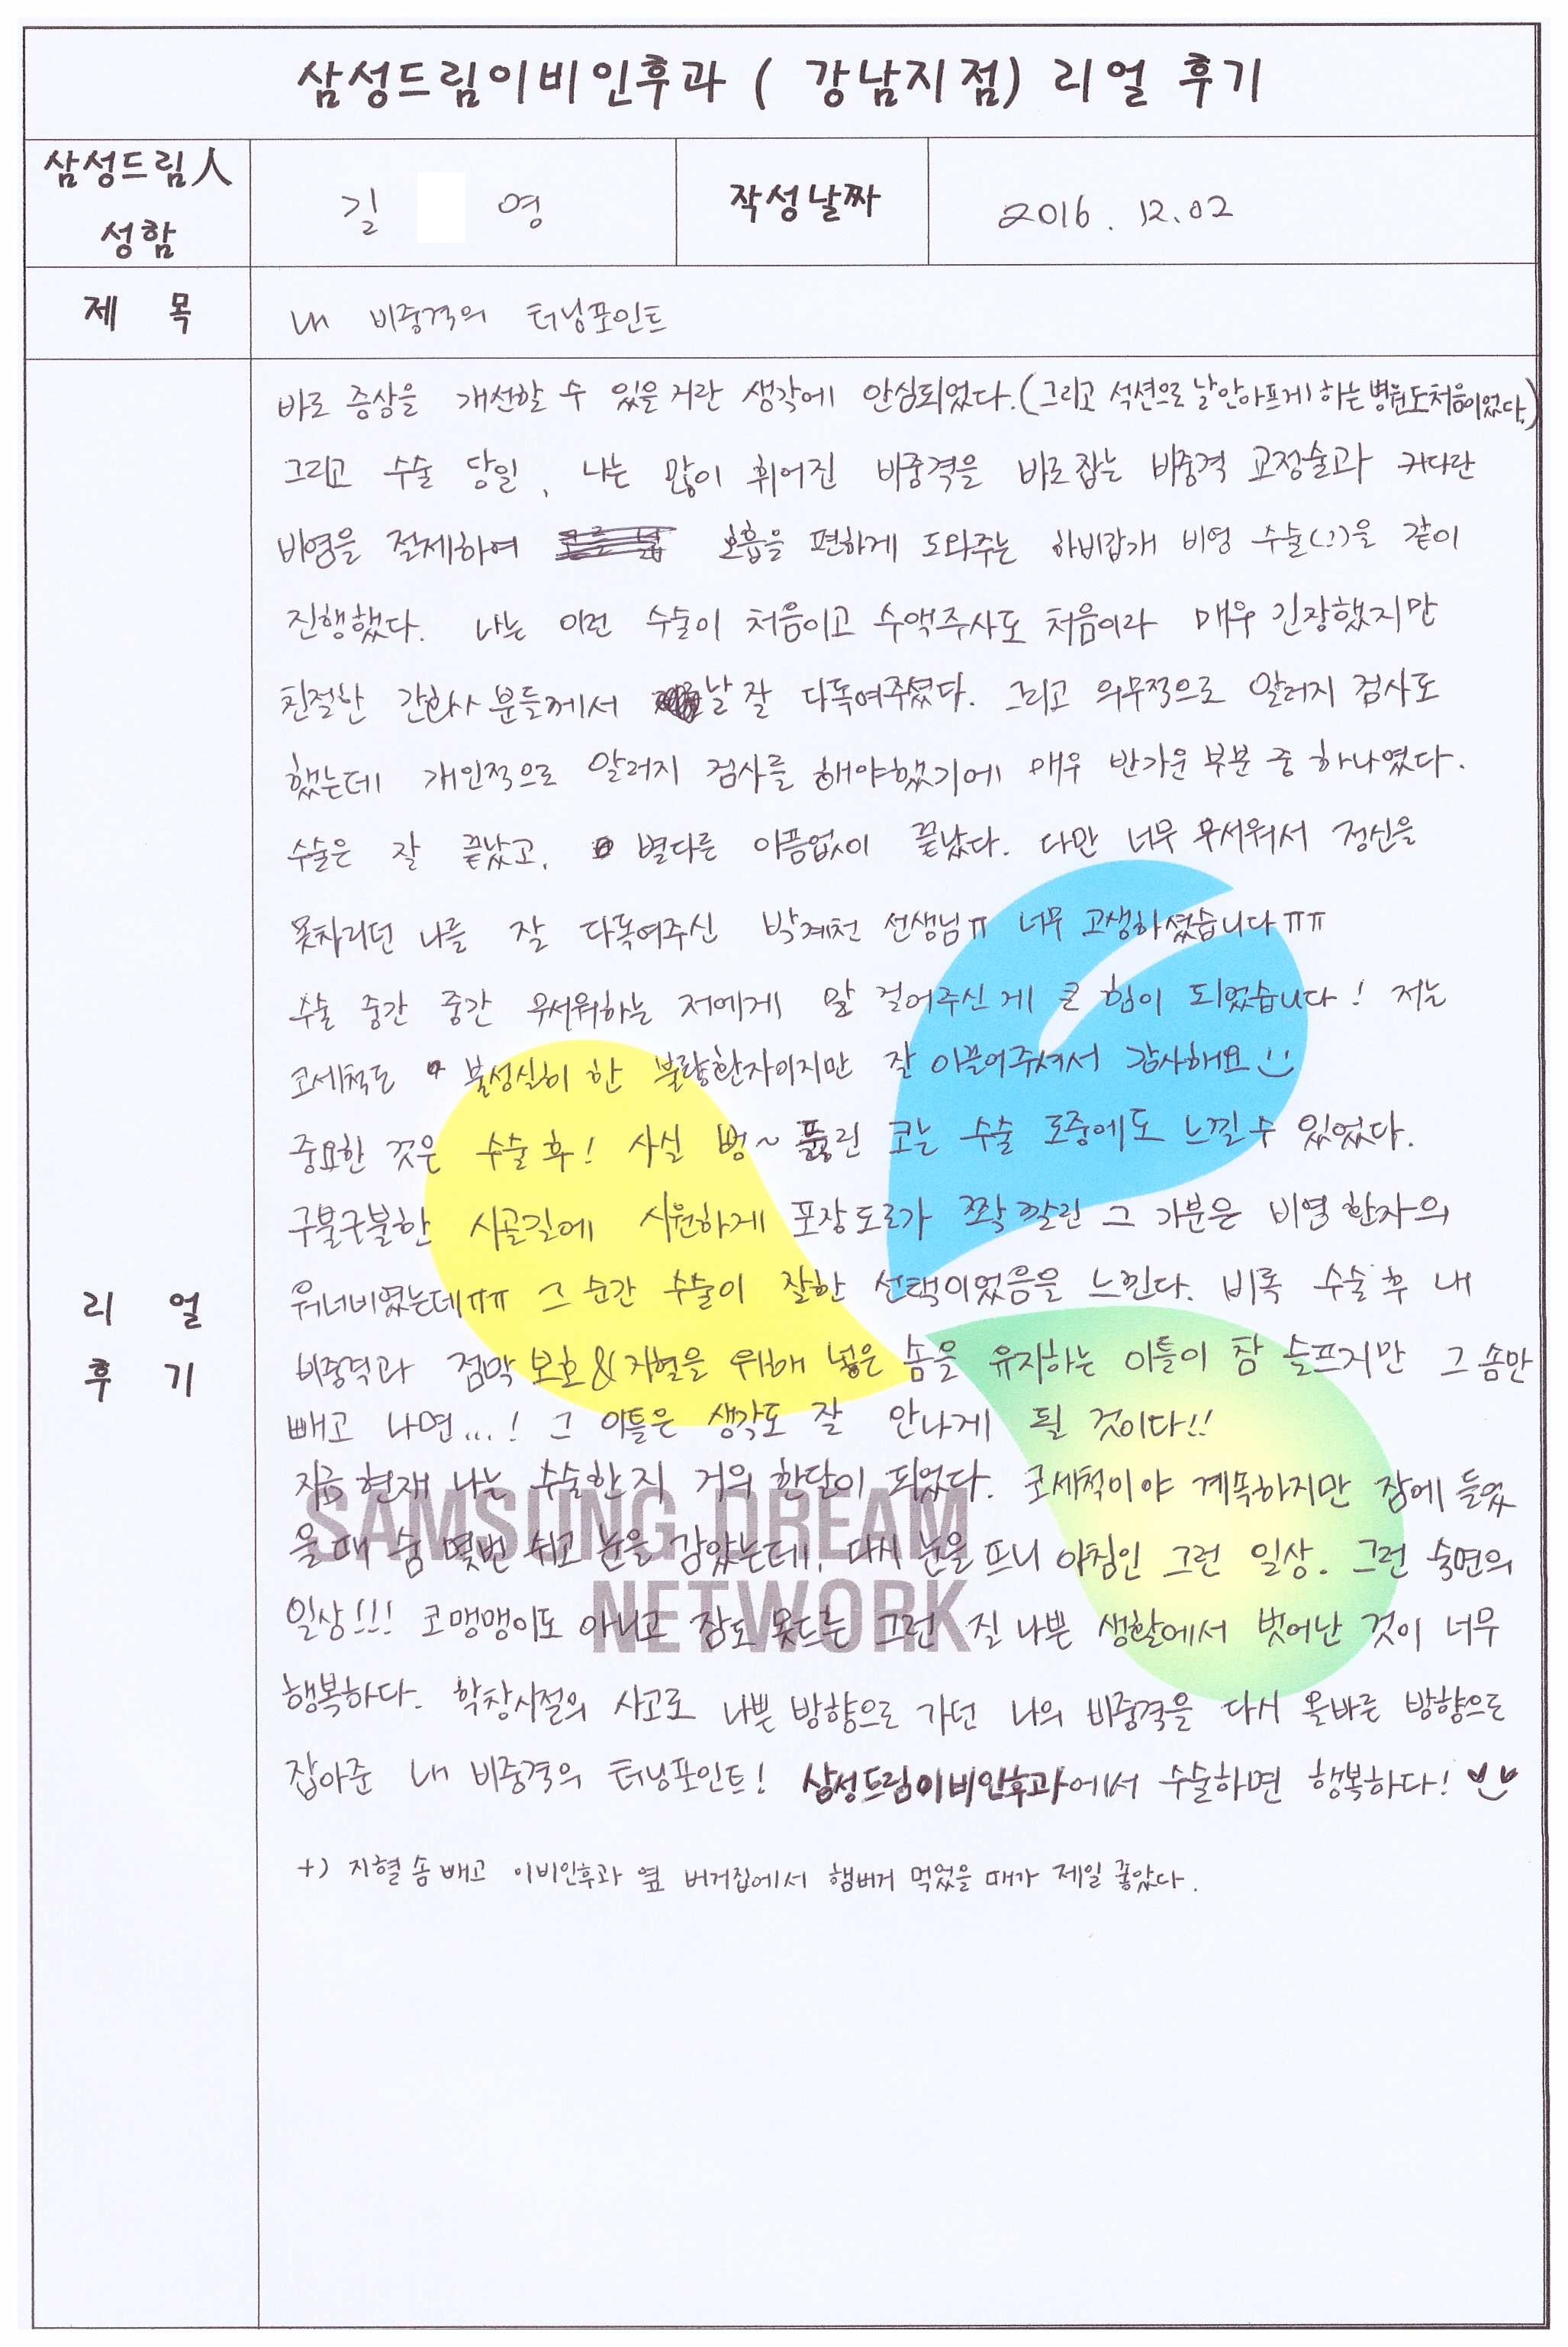 삼성드림이비인후과 ( 강남지점) 리얼 후기
삼성드림人 성함
길 영
작성날짜
2016. 12. 02
제 목
내 비중격의 터닝포인트
리 얼 후 기
바로 증상을 개선할 수 있을 거란 생각에 안심되었다.(그리고 석션으로 날 안아프게 하는 병원도 처음이었다.)
그리고 수술 당일, 나는 많이 휘어진 비중격을 바로잡는 비중격 교정술과 커다란
비염을 절제하여 호흡을 편하게 도와주는 하비갑개 비염 수술(?)을 같이
진행했다. 나는 이런 수술이 처음이고 수액주사도 처음이라 매우 긴장했지만
친절한 간호사 분들께서 날 잘 다독여주셨다. 그리고 의무적으로 알러지 검사도
했는데 개인적으로 알러지 검사를 해야했기에 매우 반가운 부분 중 하나였다.
수술은 잘 끝났고, 별다른 아픔없이 끝났다. 다만 너무 무서워서 정신을
못차리던 나를 잘 다독여주신 박계천 선생님ㅠ 너무 고생하셨습니다ㅠㅠ
수술 중간 중간 무서워하는 저에게 말 걸어주신 게 큰 힘이 되었습니다! 저는
코세척도 불성실히 한 불량환자이지만 잘 이끌어주셔서 감사해요
중요한 것은 수술 후! 사실 뻥~ 뚫린 코는 수술 도중에도 느낄 수 있었다.
구불구불한 시골길에 시원하게 포장도로가 쫙 깔린 그 기분은 비염 환자의
워너비였는데ㅠㅠ 그 순간 수술이 잘한 선택이었음을 느낀다. 비록 수술 후 내
비중격과 점막 보호&지혈을 위해 넣은 솜을 유지하는 이틀이 참 슬프지만 그 솜만
빼고 나면...! 그 이틀은 생각도 잘 안나게 될 것이다!!
지금 현재 나는 수술한지 거의 한달이 되었다. 코세척이야 계속하지만 잠에 들었
을 때 숨 몇번 쉬고 눈을 감았는데, 다시 눈을 뜨니 아침인 그런 일상. 그런 숙면의
일상!!! 코맹맹이도 아니고 잠도 못드는 그런 질 나쁜 생활에서 벗어난 것이 너무
행복하다. 학창시절의 사고로 나쁜 방향으로 가던 나의 비중격을 다시 올바른 방향으로
잡아준 내 비중격의 터닝포인트! 삼성드림이비인후과에서 수술하면 행복하다!
+) 지혈 솜 빼고 이비인후과 옆 버거집에서 햄버거 먹었을 때가 제일 좋았다.
SAMSUNG DREAM
NETWORK